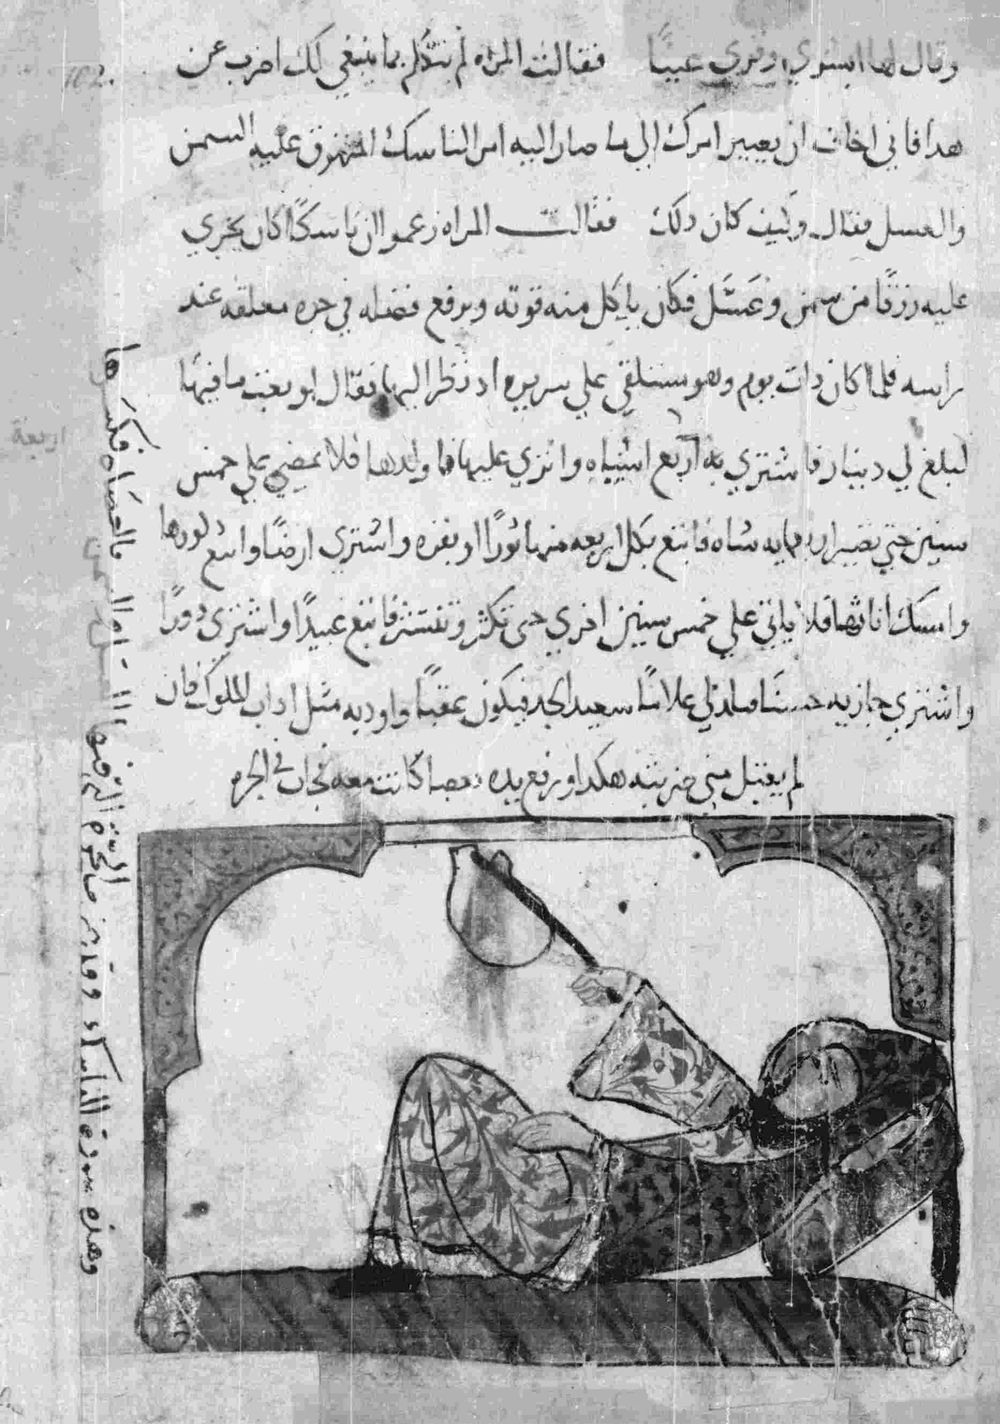 وقال لها ابشري وقري عينًا فقالت المراه لم تتكلم بما ينبغي لك اضرب عن
هدا فاني اخاف ان يصير امرك الي ما صار اليه امر الناسك المهرق عليه السمن
والعسل فقال وكيف كان دلك فقالت المراه زعموا ان ناسكًا كان يجري
عليه رزقًا من سمن وعسل فكان ياكل منه قوته ويرفع فضله في جره معلقه عند
راسه فلما كان دات يوم وهو مستلقي علي سريره اد نظر اليها فقال لو بعت ما فيها
لبلغ لي دينار فاشتري به اربع اشياه وانزي عليها فما ولدها فلا يمضي علي خمس
سنين حتي تصير اربعمايه شاه فابتع بكل اربعه منها ثورًا او بقره واشتري ارضًا وابتع
وامسك اناثها فلا ياتي علي خمس سنين اخري حتي تكثر فابتع عبيدًا واشتري دورًا
واشتري جاريه حسنًا فتلد لي غلامًا سعيد الجد فيكون عقبًا واودبه مثل اداب الملوك فان
لم يقبل مني ضربته هكدا ورفع يده بعصا كانت معه فجات في الجره
وهذه صورة الناسك وقد ضرب الجرة التي فيها السمن والعسل بالعصاه فكسرها
اربعة
102